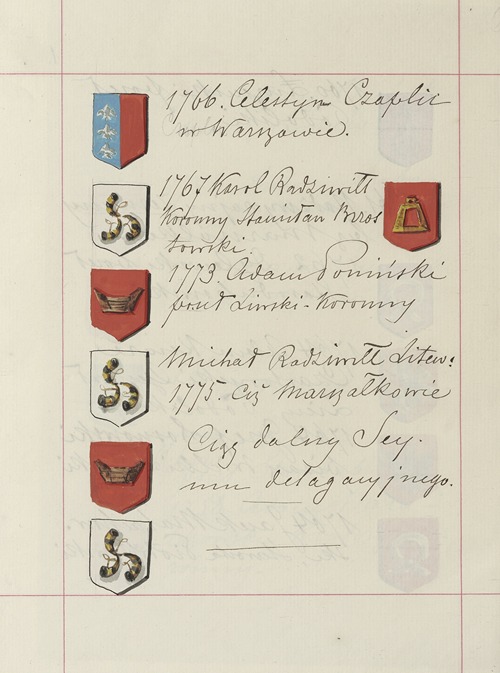 1766. Celestyn Czaplic
w Warszawie.
1767 Karol Radziwiłł
Koronny Stanisław Brzos
towski.
1773. Adam Poniński
Koronny
Michał Radziwiłł Litew:
1775. Ciż Marszałkowie
Ciąg dalszy Sey.
mu delagacyjnego.